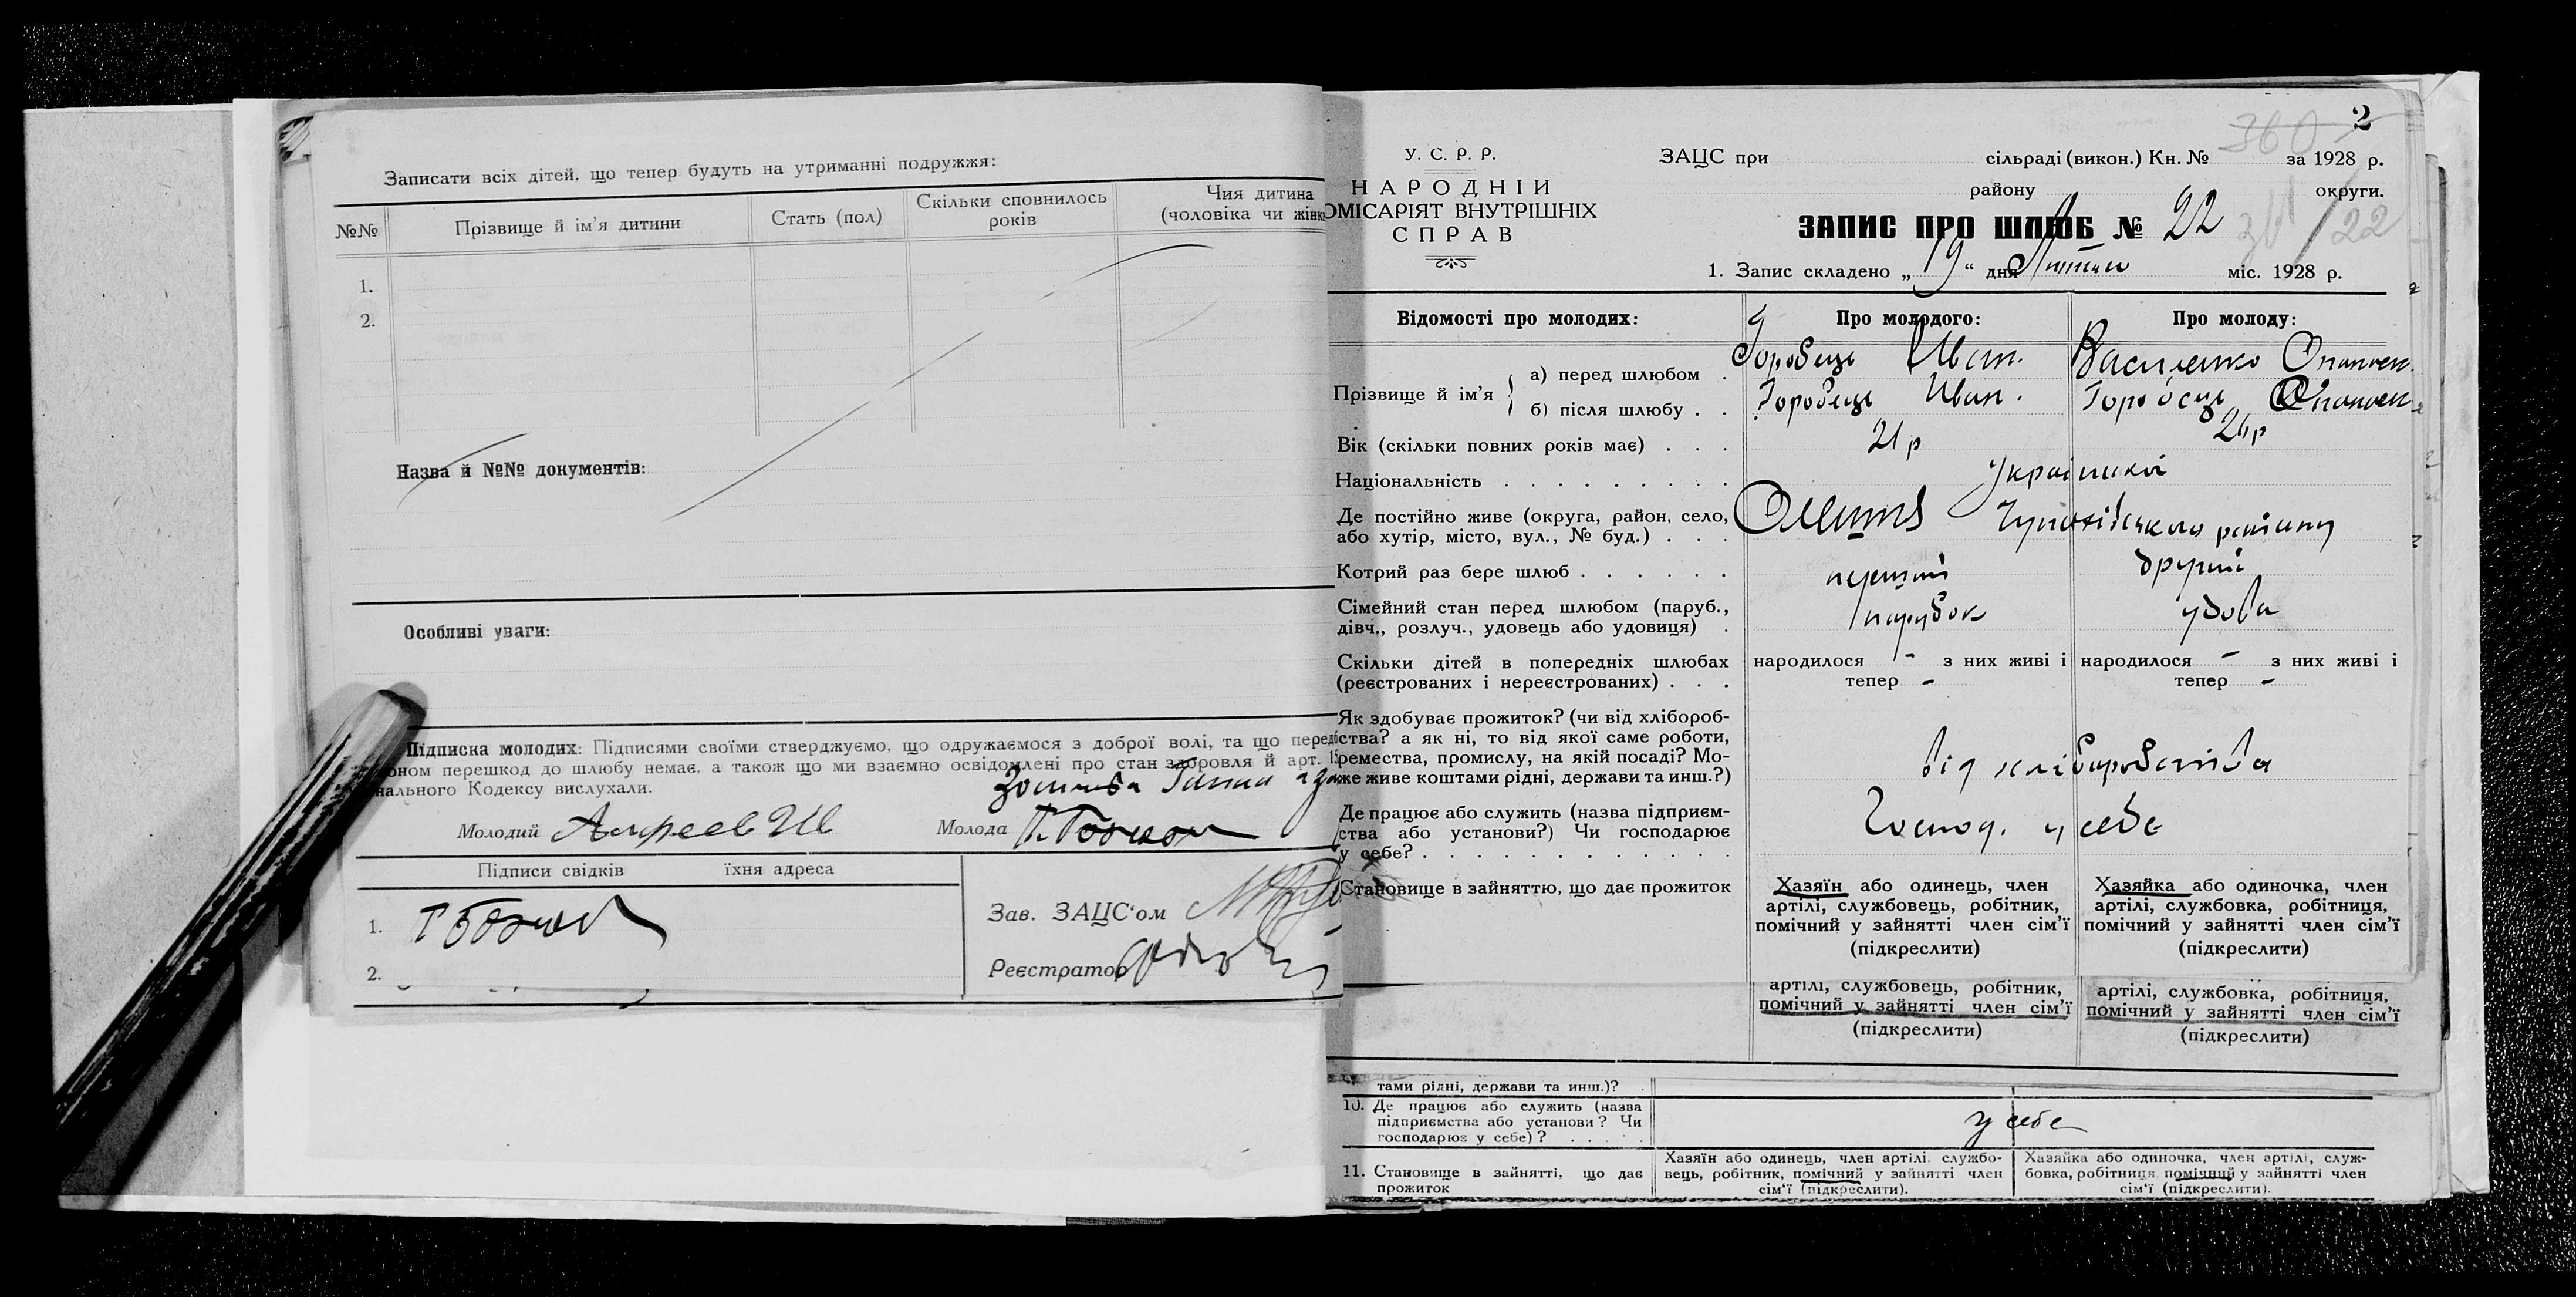 Записати всіх дітей, що тепер будуть на утриманні подружжя:
№№ Прізвище й ім'я дитини Стать (пол) Скільки сповнилось років Чия дитина (чоловіка чи жінк
1.
2.
Назва й №№ документів:
Особливі уваги:
Підписка молодих: Підписями своїми стверджуємо, що одружаємося з доброї волі, та що перед
оном перешкод до шлюбу немає, а також що ми взаємно освідомлені про стан здоровля й арт.
нального Кодексу вислухали.
Молодий
Молода
Підписи свідків їхня адреса
1.
2.
Зав. ЗАЦС'ом
Реєстратор
2
360
У. С. Р. Р.
НАРОДНІЙ
ОМІСАРІЯТ ВНУТРІШНІХ
СПРАВ
ЗАЦС при сільраді (викон.) Кн. № за 1928 р.
району округи.
ЗАПИС ПРО ШЛЮБ № 22
1. Запис складено „19“ дня міс. 1928 р.
Відомості про молодих: Про молодого: Про молоду:
Прізвище й ім'я
а) перед шлюбом . Горобець Иван. Василенко
б) після шлюбу . . Горобець Иван. Горобець
Вік (скільки повних років має) . . . 21 р
Національність . . . . . . . . . Українці
Де постійно живе (округа, район, село,
або хутір, місто, вул., № буд.) . . . району
Котрий раз бере шлюб . . . . . . перший другий
Сімейний стан перед шлюбом (паруб.,
дівч., розлуч., удовець або удовиця) . парубок удова
Скільки дітей в попередніх шлюбах
(реєстрованих і нереєстрованих) . . .
народилося - з них живі і
тепер -
народилося - з них живі і
тепер -
Як здобуває прожиток? (чи від хлібороб-
ства? а як ні, то від якої саме роботи,
ремества, промислу, на якій посаді? Мо-
же живе коштами рідні, держави та инш.?)
від хліборобства
Де працює або служить (назва підприєм-
ства або установи?) Чи господарює
у себе? . . . . . . . . . . . .
Господ. у себе
Становище в зайняттю, що дає прожиток
Хазяїн або одинець, член
артілі, службовець, робітник,
помічний у зайнятті член сім'ї
(підкреслити)
Хазяйка або одиночка, член
артілі, службовка, робітниця,
помічний у зайнятті член сім'ї
(підкреслити)
артілі, службовець, робітник,
помічний у зайнятті член сім'ї
(підкреслити)
артілі, службовка, робітниця,
помічний у зайнятті член сім'ї
(підкреслити)
тами рідні, держави та инш.)?
10. Де працює або служить (назва
підприємства або установи? Чи
господарює у себе)? . . . . .
у себе
11. Становище в зайнятті, що дає
прожиток
Хазяїн або одинець, член артілі, службо-
вець, робітник, помічний у зайнятті член
сім'ї (підкреслити).
Хазяйка або одиночка, член артілі, служ-
бовка, робітниця, помічний у зайнятті член
сім'ї (підкреслити).